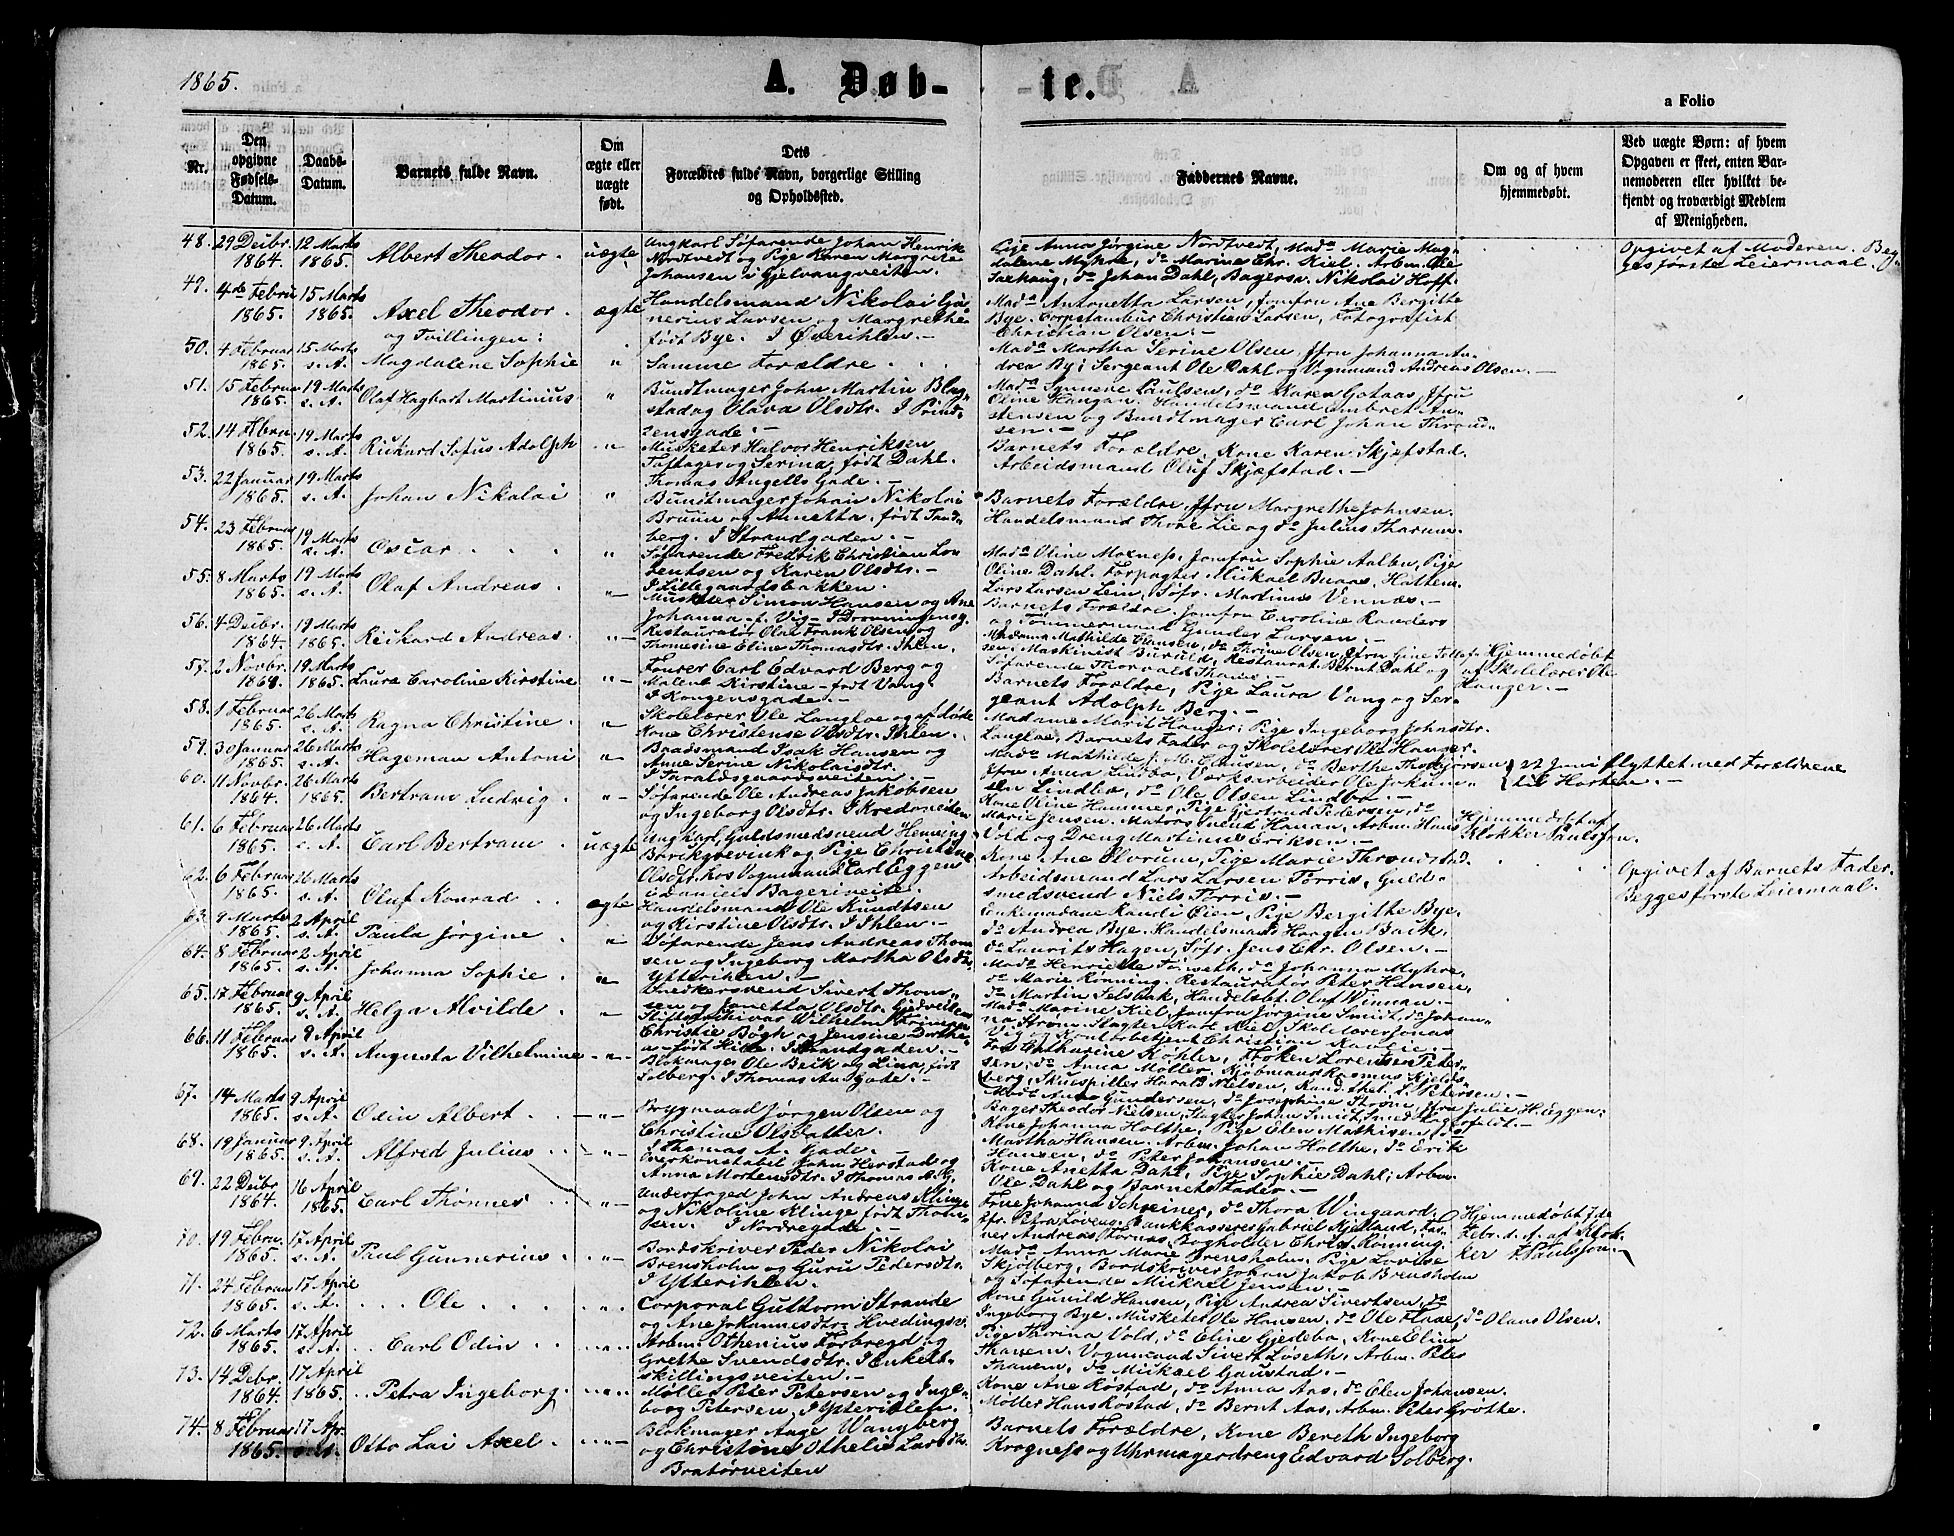 1865.
A. Døb-
te.
a Folio
Nr.
Den opgivne Fødsels-Datum.
Daabs-Datum.
Barnets fulde Navn.
Om ægte eller uægte født.
Dets Forældres fulde Navn, borgerlige Stilling og Opholdssted.
Faddernes Navne.
Om og af hvem hjemmedøbt.
Ved uægte Børn: af hvem Opgaven er skeet, enten Barnemoderen eller hvilket bekjendt og troværdigt Medlem af Menigheden.
48. 29 Decbr. 1864. 12 Marts 1865. Albert Theodor. uægte
Ungkarl Søfarende Johan Henrik
Nordtvedt og Pige Karen Margrete
Johansen i Gjelvangveiten.
Pige Anna Jørgine Nordtvedt, Mada Marie Mag-
dalene Myhre, do Marine Chr. Kiel, Arbm Ole
Saehaug, do Johan Dahl, Bagersv. Nikolai Hoff.
Opgivet af Moderen. Beg-
ges første Leiermaal.
49. 4de Febru 1865. 15 Marts 1865. Axel Theodor. ægte
og Tvillingen:
Handelsmand Nikolai Gu-
nerius Larsen og Margrethe
født Bye. I Øverihlen.
Mada Antonetta Larsen, Jomfru Ane Bergitte
Bye. Corpstambur Christian Larsen, Fotografist
Christian Olsen.
50. 4 Februar 1865. 15 Marts s. A. Magdalene Sophie "
Samme Forældre
Mada Martha Serine Olsen, Jfru Johanna An-
drea By; Sergeant Ole Dahl og Vognmand Andreas Olsen.
51. 15 Februar 1865. 19 Marts s. A. Olaf Hagbart Martinius "
Bundtmager John Martin Blag-
stad og Olava Olsdtr. I Prind-
sensgade.
Mada Synneve Paulsen, do Karen Gotaas, Jfru
Oline Haugan, Handelsmand Embret An-
stensen og Bundtmager Carl Johan Thround-
sen.
52. 14 Febru. 1865. 19 Marts s. A. Richard Sofus Adolph "
Musketer Halvor Henriksen
Toftager og Serina, født Dahl.
Thomas Angells Gade.
Barnets Forældre, Kone Karen Skjefstad.
Arbeidsmand Oluf Skjæfstad.
53. 22 Januar 1865. 19 Marts s. A. Johan Nikolai "
Buntmager Johan Nikolai
Bruun og Annetta, født Sand-
berg. I Strandgaden.
Barnets Forældre, Jfru Margrethe Johnsen.
Handelsmand Thore Lie og do Julius Tharum.
54. 23 Februar 1865. 19 Marts s. A. Oscar "
Søfarende Fredrik Christian Lou
rentsen og Karen Olsdtr.
I Lillegaardsbakken.
Mada Oline Moxness, Jomfru Sophie Aalbu, Pige
Oline Dahl. Forpagter Mickael Buaas, Hattem.
Lars Larsen Lein, Søfr. Martinus Vennæs.
55. 8 Marts 1865. 19 Marts s. A. Olaf Andreas. "
Musketer Simon Hansen og Ane
Johanna f. Vig I Dronningensg.
Barnets Forældre. Jomfru Caroline Randers
og Tømmermand Gunder Larsen.
56. 4 Decbr. 1864. 19 Marts 1865. Richard Andreas. "
Restauratør Olaf Frank Olsen og
Thomesine Eline Thomasdtr. Ihlen.
Madama Mathilde Clausen, do Thrine Olsen, Jfru Gine Tellef-
sen. Maskinist Buruld, Restaurat. Bernt Dahl og
Søfarende Thorvald Thanes.
Hjemmedøbt
af Skolelærer Ole
Hanger.
57. 2 Novbr. 1864. 19 Marts 1865. Laura Caroline Kirstine "
Fourer Carl Edvard Berg og
Malene Kirstine født Vang.
I Kongensgade.
Barnets Forældre, Pige Laura Vang og Ser-
geant Adolph Berg.
58. 1 Februar 1865. 26 Marts s. A. Ragna Christine "
Skolelærer Ole Langloe og afdøde
Kone Christense Olsdtr. Ihlen.
Madame Marit Hanger; Pige Ingeborg Johnsdtr.
Langloe, Barnets Fader og Skolelærer Ole Hanger.
59. 30 Januar 1865. 26 Marts s. A. Hageman Antoni "
Baadsmand Isak Hansen og
Anne Serine Nikolaisdtr.
I Taraldsgaardsveiten.
Mada Mathilde Hansen, do Berthe Thorbjørsen
Jfru Anna Lindbo, Værksarbeider Ole Jokum-
sen Lindler, do Ole Olsen Lindbo.
22 Juni flyttet med Forældrene
til Horten.
60. 11 Novbr. 1864. 26 Marts 1865. Bertram Ludvig "
Søfarende Ole Andreas Jakobsen
og Ingeborg Olsdtr. I Kredoveiten
Kone Oline Hammer, Pige Gjertrud Pedersen, do
Marie Jensen. Matros Knut Hanan, Arbm. Hans
Vold og Dreng Martinus Eriksen.
Hjemmedøbt af
Klokker Paulsson.
61. 6 Februar 1865. 26 Marts s. A. Carl Bertram. uægte
Ungkarl, Guldsmedsvend Henning
Barikgrevink og Pige Christine
Olsdtr. hos Vognmand Carl Eggen
i Daniels Bageriveite.
Kone Ane Elvrum, Pige Marie Throndstad.
Arbeidsmand Lars Larsen Torris, Guld-
smedsvend Niels Torris.
Opgivet af Barnets Fader.
Begges første Leiermaal.
62. 6 Februar 1865. 26 Marts s. A. Oluf Konrad ægte
Handelsmand Ole Knudtsen
og Kirstine Olsdtr. I Ihlen.
Enkemadane Randi Øien, Pige Bergithe Bye.
do Andrea Bye. Handelsmand Haagen Baik,
do Laurits Hagen, Søfr. Jens Chr. Olsen.
63. 9 Marts 1865. 2 April s. A. Paula Jørgine "
Søfarende Jens Andreas Thom
sen og Ingeborg Martha Olsdtr
Ytterihlen.
Mada Henriette Forseth, do Johanna Myhre,
do Marie Rønning. Restauratør Peter Hansen,
do Martin Felsbak, Handelsbt. Oluf Winnan.
64. 8 Februar 1865. 2 April s. A. Johanna Sophie "
65. 17 Februar 1865. 9 April s. A. Helga Alvilde "
Snedkersvend Sivert Thoms-
sen og Janetta Olsdtr. Gjødveiten
Mada Marine Kiel, Jomfru Jørgine Smidt, do Johan-
na Strøm. Slagter Karl Kiel, Skolelærer Jonas
Vig og Kontorbetjent Christian Kavlie.
66. 11 Februar 1865. 9 April s. A. Augusta Vilhelmine "
Stiftsarchivar Wilhelm Friman
Christie Bøgh og Jensine Dorthe-
a født Hille. I Strandgaden.
Frøk Catharine Köhler, Frøken Lorentsen Peter-
sen, do Anna Møller, Kjøbmand Rasmus Kjelds-
berg, Skuespiller Harald Nielsen, Kand. theol. L. Petersen.
67. 14 Marts 1865. 9 April s. A. Odin Albert "
Blokmager Ole Beik og Lina, født
Solberg. I Thomas An. Gade.
Mada Anne Gundersen, do Josephine Thrane, Jfru Julie Huggen.
Bager Theodor Nielsen, Slagter Johan Smidt, Smed Skogerfeldt.
68. 19 Januar 1865. 9 April s. A. Alfred Julius "
Brygmand Jørgen Olsen og
Christine Olsdatter.
I Thomas A. Gade.
Kone Johanna Holthe, Pige Elen Mathisen, do
Martha Hansen. Arbm. Johan Holthe, do Erik
Hansen, do Peter Johansen.
69. 22 Decbr 1864. 16 April 1865. Carl Thønnes "
Overkonstabel John Herstad og
Anna Mortensdtr. I Thomas A. G.
Kone Anetta Dahl, Pige Sophie Dahl; Arbm.
Ole Dahl og Barnets Fader.
Underfoged John Andreas Klinge
og Nikoline Klinge født Thom-
sen. I Nordregade.
Frue Johanna Schreiner, do Thora Wingaard,
Jfr. Petra Løveng, Bankkasserer Gabriel Kjelland, Kas-
serer Andreas Fornæs, Bogholder Christ Rønning
Hjemmedøbt 7de
Febr. s. A. af Klok-
ker F. Paulsson.
70. 19 Februa. 1865. 17 April s. A. Paul Gunnerius "
Bordskriver Peder Nikolai
Brensholm og Guru Pedersdtr.
I Ytterihlen.
Mada Anna Marie Brensholm, Pige Lovise
Skjølberg, Bordskriver Johan Jakob Brensholm
og Søfarende Mickael Jensen.
71. 24 Februar 1865. 17 April s. A. Ole "
Corporal Guttorm Strande
og Ane Johannesdtr. Hvedingsv.
Kone Gunild Hansen, Pige Andrea Sivertsen, do
Ingeborg Bye. Musketer Ole Hansen, do Ole Flaae, do Olaus Olsen.
72. 6 Marts 1865. 17 April s. A. Carl Odin "
Arbm. Othenius Forbregd og
Grethe Svendsdtr. I Enkelt-
skillingsveiten.
Pige Thorina Vold, do Eline Gjedebo, Kone Elina
Thanem. Vognmand Sivert Løseth, Arbm. Peter
Thanem, do Mickael Gaustad.
73. 14 Debr. 1864. 17 April 1865. Petra Ingeborg "
Møller Peter Petersen og Inge-
borg Petersen, I Ytterihlen.
Kone Ane Røstad, do Anna Aas, do Elen Johansen.
Möller Hans Røstad, do Bernt Aas, Arbm. Peter Grøthe.
74. 8 Februar 1865. 17 Apr. s. A. Otto Lai Axel "
Blokmager Aage Wangberg
og Christine Othelie Larsdtr.
Bratørveiten
Barnets Forældre, Kone Bereth Ingeborg
Kragness og Uhrmagerdreng Edvard Solberg.